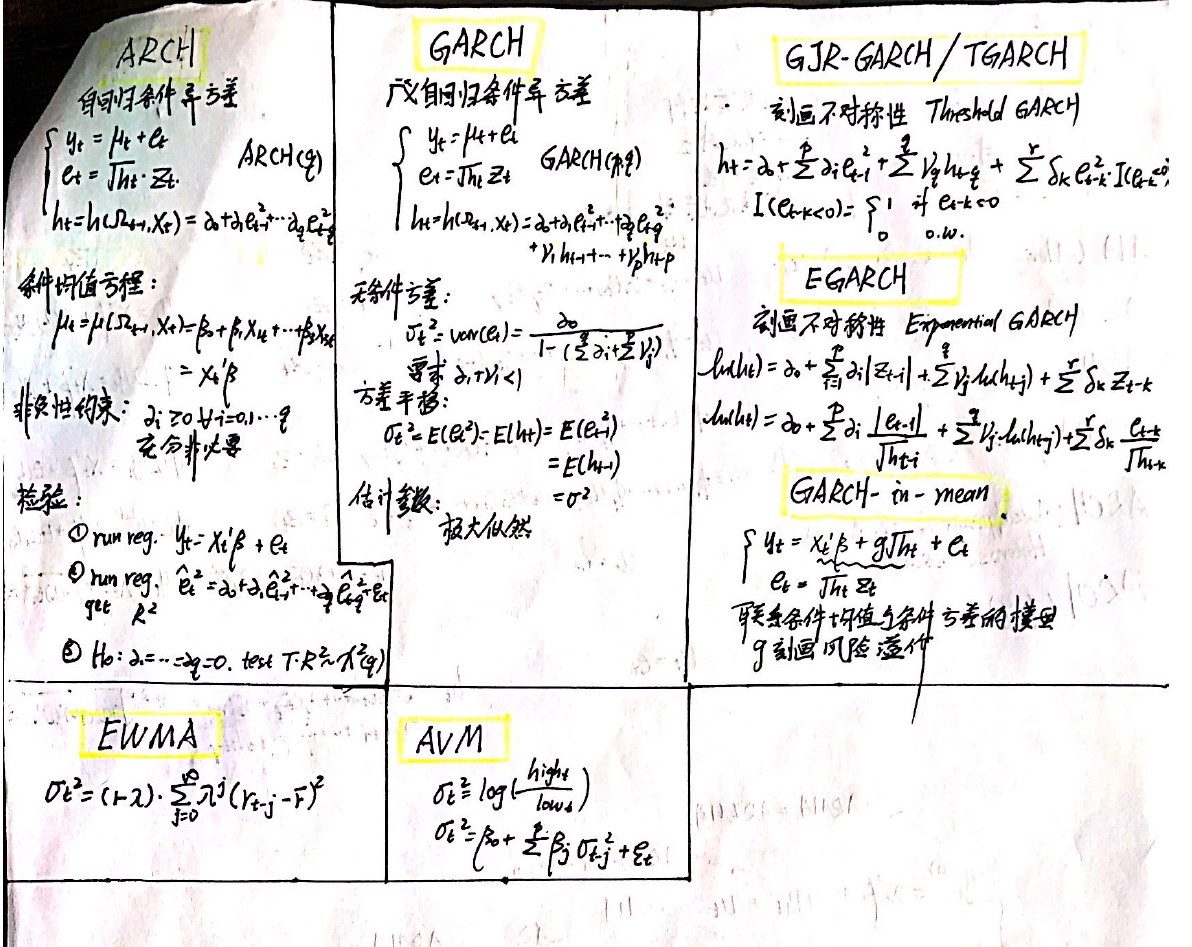 ARCH
自回归条件异方差
y_t = μ_t + e_t
e_t = √h_t · z_t.
ARCH(q)
h_t = h(Ω_{t-1}, X_t) = α_0 + α_1 e_{t-1}^2 + ··· α_q e_{t-q}^2
条件均值方程：
μ_t = μ(Ω_{t-1}, X_t) = β_0 + β_1 X_{1t} + ··· + β_s X_{st}
= X_t'β
非负性约束： α_i ≥ 0 ∀ i = 0,1 ··· q
充分非必要
检验：
① run reg. y_t = X_t'β + e_t
② run reg. ê_t^2 = α_0 + α_1 ê_{t-1}^2 + ··· + α_q ê_{t-q}^2 + ε_t
get R^2
③ H_0: α_1 = ··· = α_q = 0. test T·R^2 ~ χ^2(q)
GARCH
广义自回归条件异方差
y_t = μ_t + e_t
e_t = √h_t z_t
GARCH(p,q)
h_t = h(Ω_{t-1}, X_t) = α_0 + α_1 e_{t-1}^2 + ··· + α_q e_{t-q}^2
+ γ_1 h_{t-1} + ··· + γ_p h_{t-p}
无条件方差：
σ_t^2 = var(e_t) = α_0 / (1 - (Σ^q α_i + Σ^p γ_j))
要求 α_i + γ_i < 1
方差平移：
σ_t^2 = E(e_t^2) = E(h_t) = E(e_{t-1}^2)
= E(h_{t-1})
= σ^2
估计参数：
极大似然
GJR-GARCH / TGARCH
刻画不对称性 Threshold GARCH
h_t = α_0 + Σ^p α_i e_{t-1}^2 + Σ^q γ_q h_{t-q} + Σ^r δ_k e_{t-k}^2 · I(e_{t-k}<0)
I(e_{t-k}<0) = { 1 if e_{t-k}<0
0 o.w.
EGARCH
刻画不对称性 Exponential GARCH
ln(h_t) = α_0 + Σ_{i=1}^p α_i |z_{t-i}| + Σ^q γ_j ln(h_{t-j}) + Σ^r δ_k z_{t-k}
ln(h_t) = α_0 + Σ^p α_i |e_{t-i}| / √h_{t-i} + Σ^q γ_j · ln(h_{t-j}) + Σ^r δ_k e_{t-k} / √h_{t-k}
GARCH-in-mean
y_t = X_t'β + g√h_t + e_t
e_t = √h_t z_t
联系条件均值与条件方差的模型
g 刻画风险溢价
EWMA
σ_t^2 = (1-λ) · Σ_{j=0}^∞ λ^j (r_{t-j} - r̄)^2
AVM
σ_t^2 = log(high_t / low_t)
σ_t^2 = β_0 + Σ^p β_j σ_{t-j}^2 + ε_t